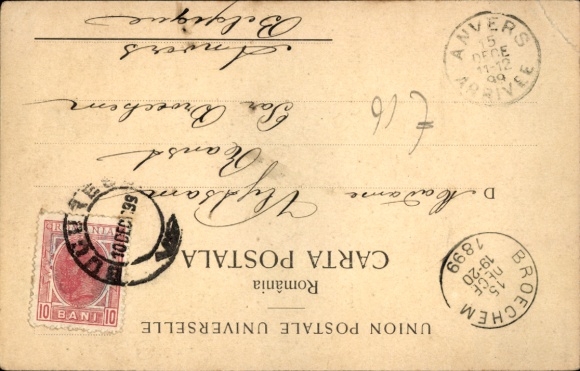 UNION POSTALE UNIVERSELLE
România
CARTA POSTALA
D Madame
Ranst
Par Broechem
Anvers
Belgique
ROMANIA
10 BANI 10
10 DEC 99
BROECHEM
15
DECE
19-20
1899
ANVERS
15
DECE
11-12
99
ARRIVÉE